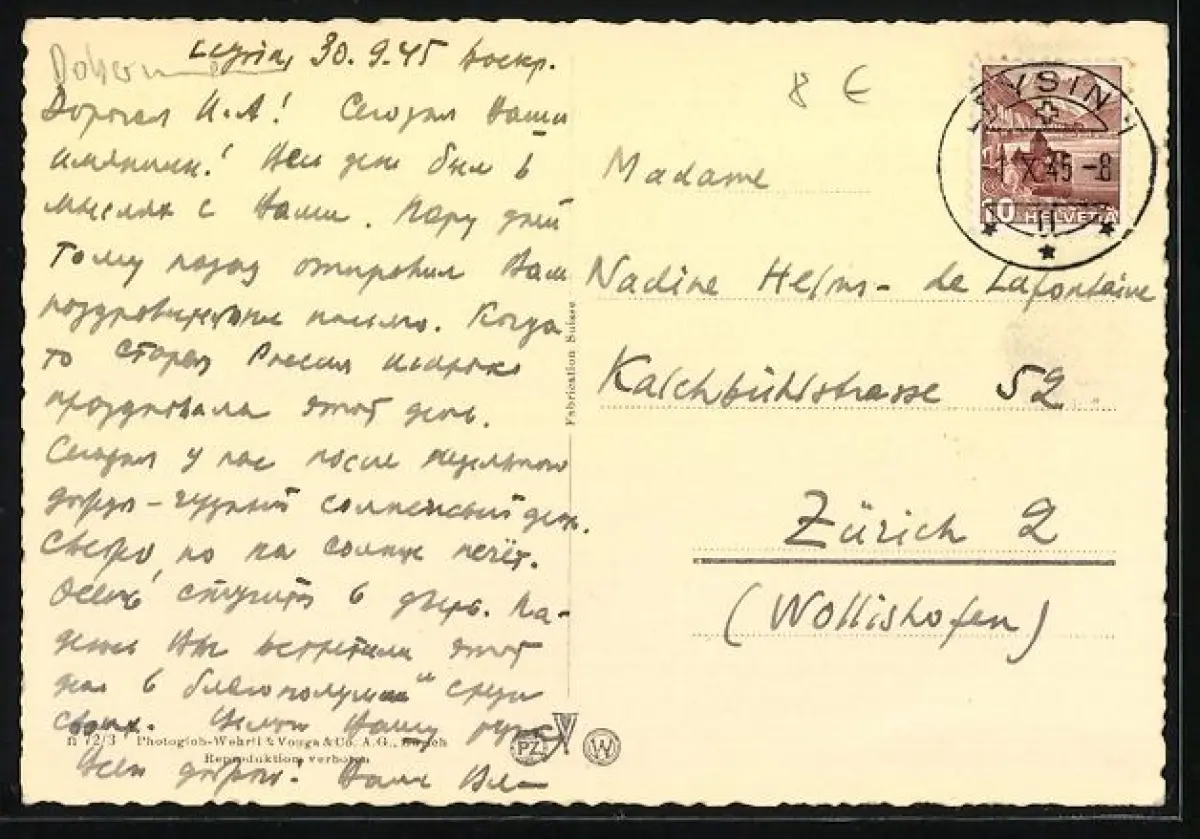 30.9.45 Воскр.
Дорогая Н.А! Сегодня Ваши
имянины! Весь день был в
мыслях с Вами. Пару дней
тому назад отправил Вам
поздравительное письмо. Когда
то старая Россия широко
праздновала этот день.
Сегодня у нас после недельного
дождя - чудный солнечный день.
Свежо, но на солнце печёт.
Осень стучится в дверь. На-
деюсь Вы встретили этот
день в благополучии и среди
своих. Целую Вашу руку
Всего доброго! Ваш
8 €
Madame
Nadine Helms - de Lafontaine
Kalchbühlstrasse 52
Zürich 2
(Wollishofen)
LEYSIN 1
1 X 45 -8
10 HELVETIA
Fabrication Suisse
72/3 Photoglob-Wehrli & Vouga & Co. A.G., Zürich
Reproduktion verboten
PZ W